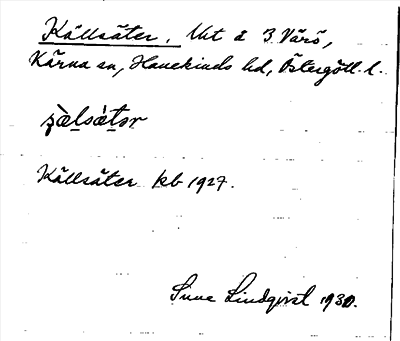 Källsäter. Utt å 3 Värö,
Kärna sn, Hanekinds hd, Östergötl. l.
Källsäter kb 1927.
Sune Lindqvist 1930.